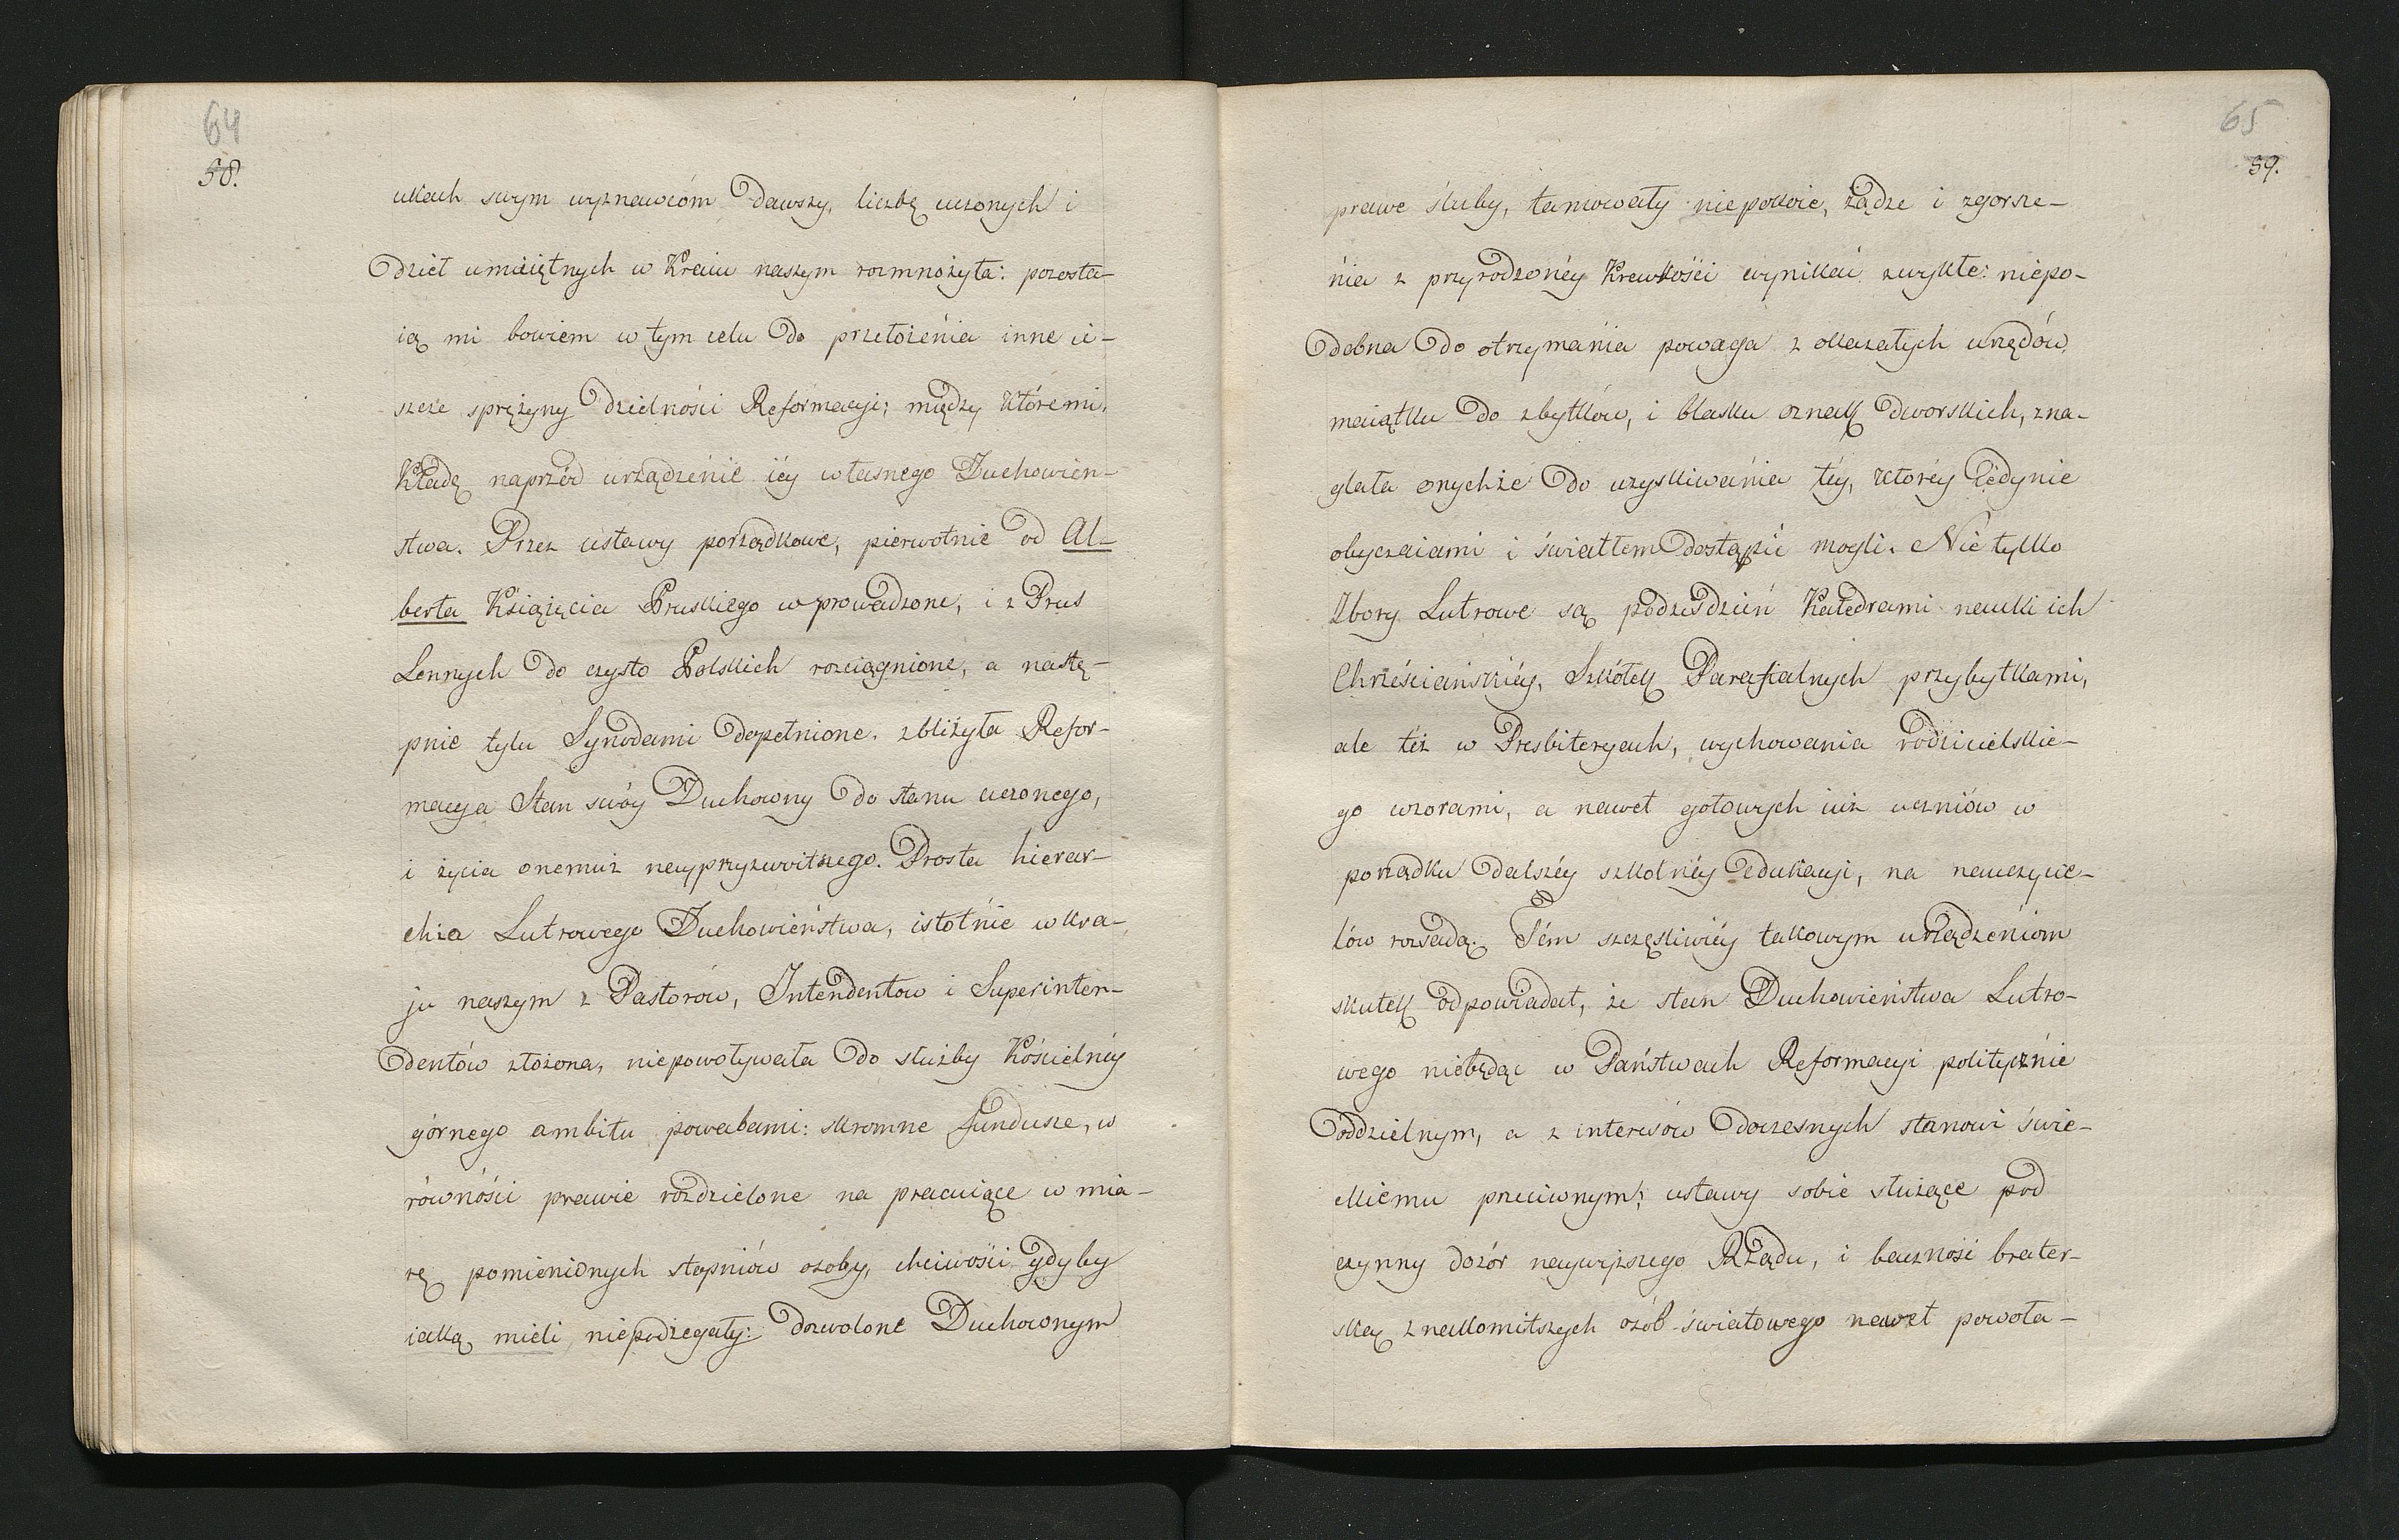 64
58.
ukach swym wyznawcóm dawszy, liczbę uczonych i
dzieł umieiętnych w Kraiu naszym rozmnożyła: pozosta-
ią mi bowiem w tym celu do przełożenia inne ie-
szcze sprężyny dzielności Reformacyi; między któremi,
Kładę naprzód urządzenie iéy własnego Duchowień-
stwa. Przez ustawy porządkowe, pierwotnie od Al-
berta Książęcia Pruskiego wprowadzone, i z Prus
Lennych do czysto Polskich rozciągnione, a nastę-
pnie tylu Synodami dopełnione, zbliżyła Refor-
macya Stan swóy Duchowny do stanu uczonego,
i życia onemuż nayprzyzwoitszego. Prosta hierar-
chia Lutrowego Duchowieństwa, istotnie w kra-
ju naszym z Pastorów, Intendentow i Superinten-
dentów złożona, niepowoływała do służby Kościelnéy
górnego ambitu powabami: skromne fundusze, w
równości prawie rozdzielone na pracuiące w mia-
rę pomienionych stopniów osoby, chciwości gdyby
iaką mieli niepodżegały: dozwolone Duchownym
65
59.
prawe śluby, tamowały niepokoie, żądze i zgorsze-
nia z przyrodzonéy Krewkości wynikać zwykłe: niepo-
dobna do otrzymania powaga z okazałych urzędów,
maiątku do zbytków, i blasku oznak dworskich, zna-
glała onychże do uzyskiwania téy, któréy iedynie
obyczaiami i światłem dostąpić mogli. Nie tylko
Zbory Lutrowe są podziśdzień Katedrami nauki ich
Chrześciańskiéy, Szkółek Parafialnych przybytkami,
ale też w Presbiteryach, wychowania rodzicielskie-
go wzorami, a nawet gotowych iuż uczniów w
porządku dalszéy szkolnéy edukacyi, na nauczycie-
lów rozsadą. Tém szczęśliwiéy takowym urządzeniom
skutek odpowiadał, że stan Duchowieństwa Lutro-
wego niebędąc w Państwach Reformacyi politycznie
oddzielnym, a z interesów doczesnych stanowi świe-
ckiemu przeciwnym; ustawy sobie służące pod
czynny dozór naywyższego Rządu, i baczność brater-
ską znakomitszych osób światowego nawet powoła-